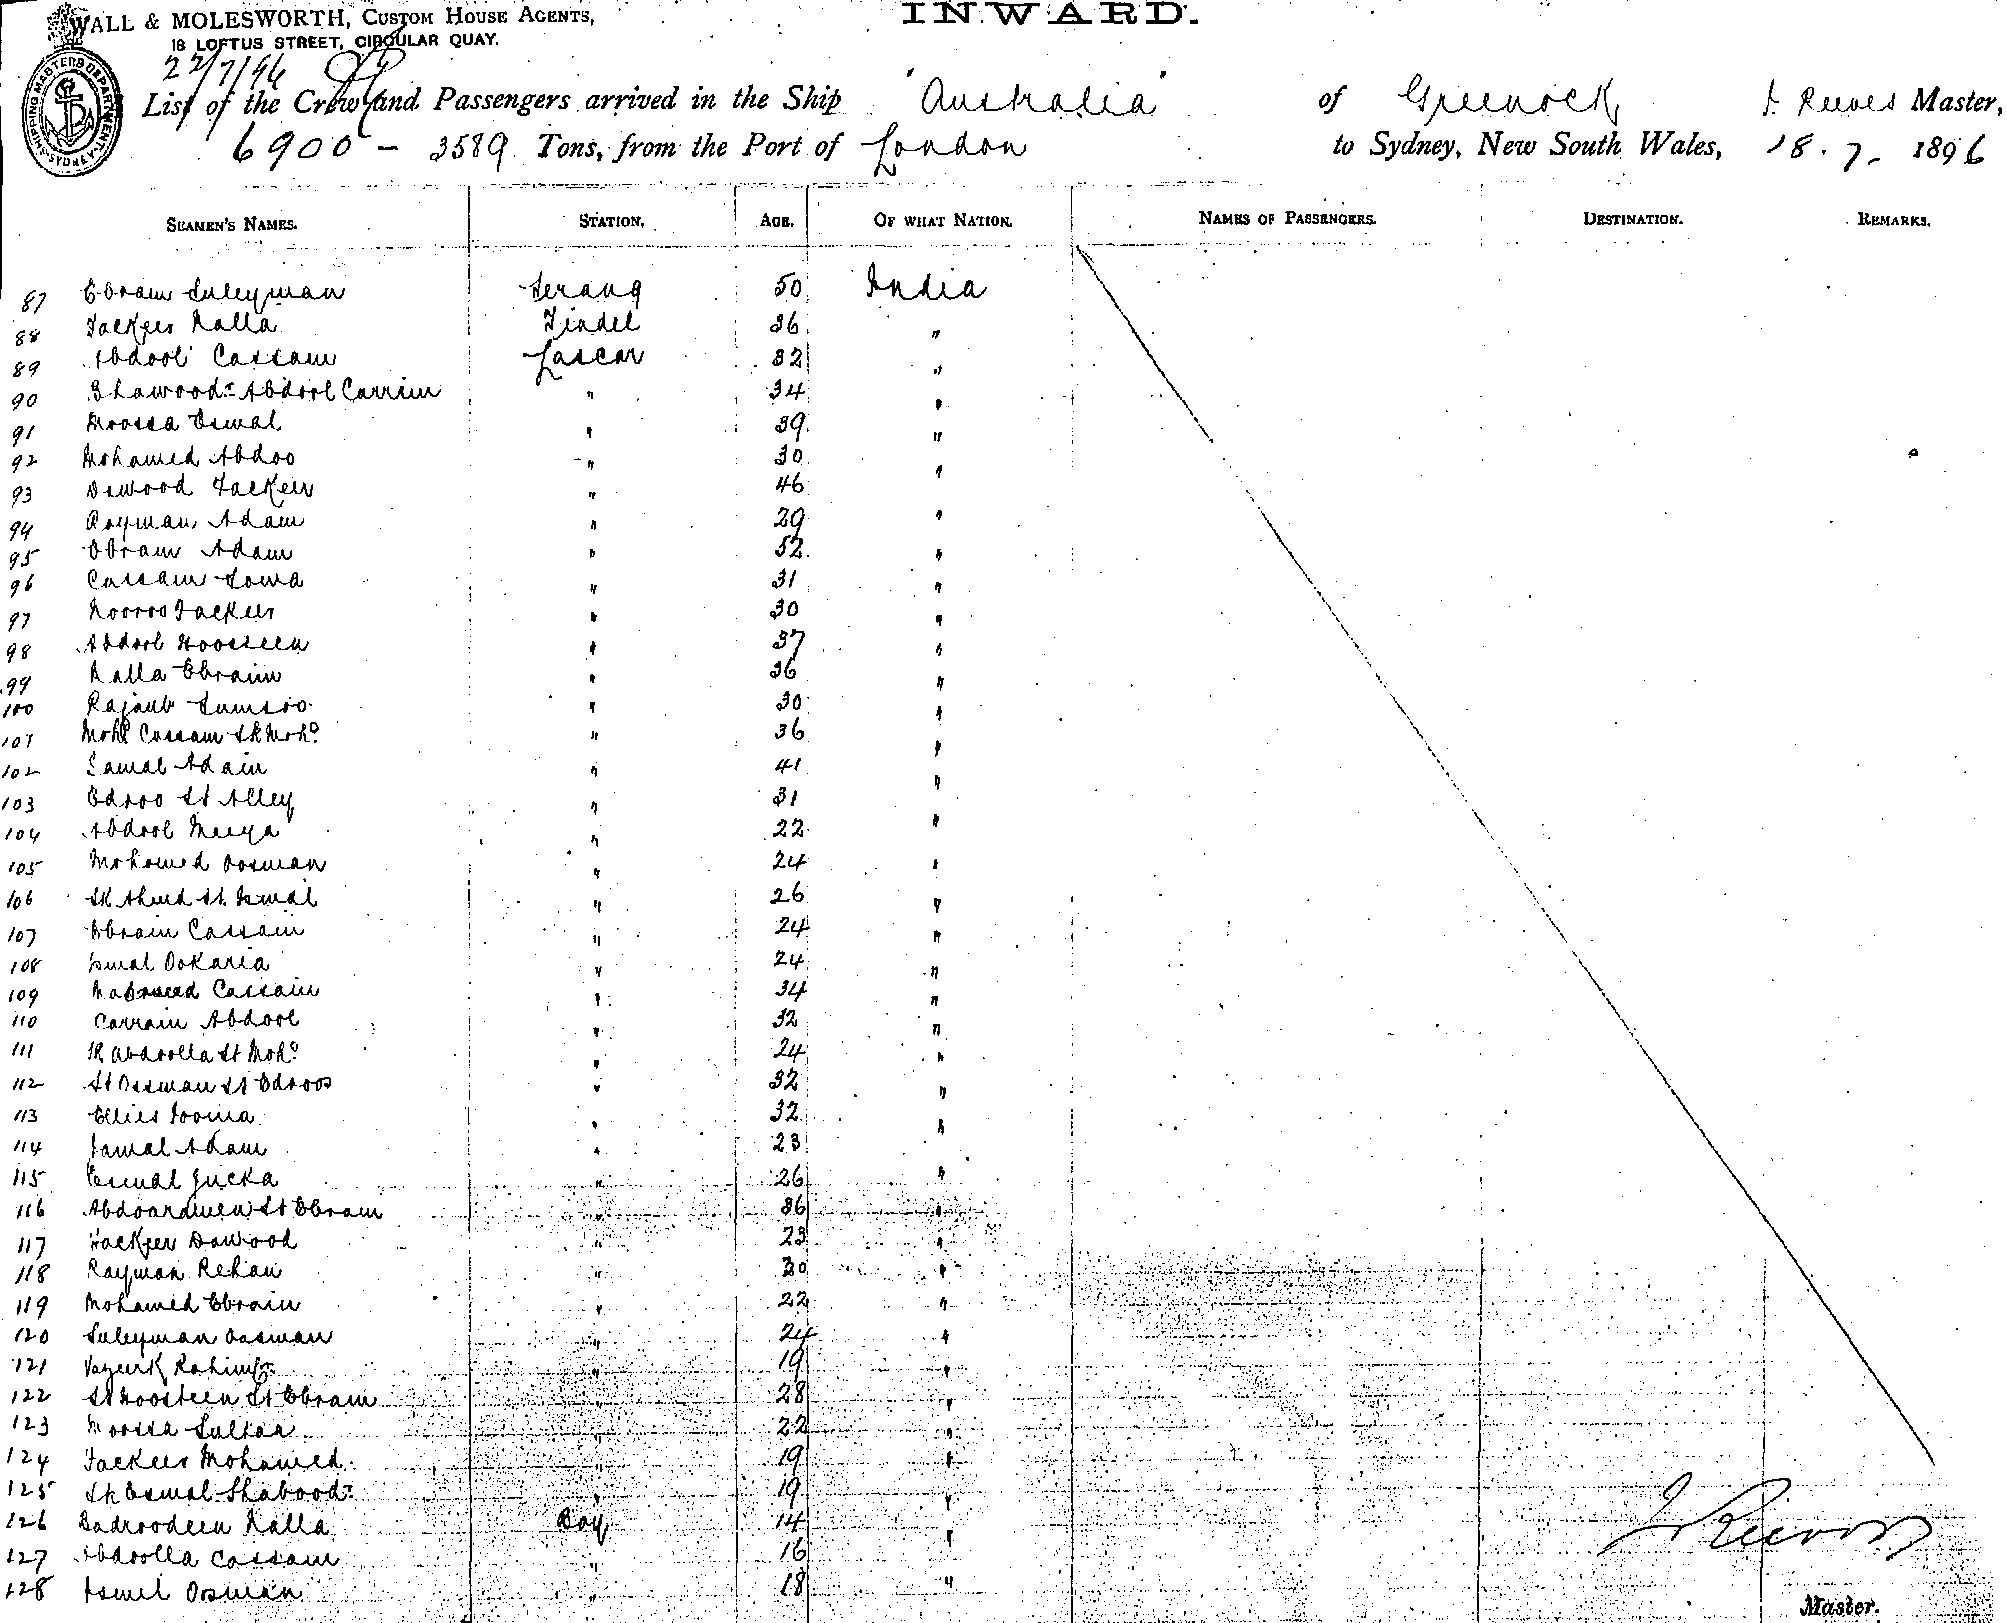 WALL & MOLESWORTH, CUSTOM HOUSE AGENTS,
18 LOFTUS STREET, CIRCULAR QUAY.
INWARD.
22/7/96
SHIPPING MASTERS DEPARTMENT SYDNEY
List of the Crew and Passengers arrived in the Ship "Australia" of Greenock J. Reeves Master,
6900 - 3589 Tons, from the Port of London to Sydney, New South Wales, 18. 7. 1896
SEAMEN'S NAMES. STATION. AGE. OF WHAT NATION. NAMES OF PASSENGERS. DESTINATION. REMARKS.
87 Ebram Suleyman Serang 50 India
88 Fackeer Nalla Tindel 36 "
89 Abdool Cassam Lascar 32 "
90 Abdool Carrim " 34 "
91 Moossa Esmal " 39 "
92 Mohamed Abdoo " 30 "
93 Dawood Fackeer " 46 "
94 Rayman Adam " 29 "
95 Ebram Adam " 52 "
96 Cassam " 31 "
97 Fackeer " 30 "
98 Abdool Hoosseen " 37 "
99 Nalla Ebraim " 36 "
100 Rajaub " 30 "
101 Mohd Cassam Sk Mohd " 36 "
102 Adam " 41 "
103 Edroo St Alley " 31 "
104 Abdool Meeya " 22 "
105 Mohamed Oosman " 24 "
106 Sk Ahmed St Ismal " 26 "
107 Ebraim Cassaim " 24 "
108 Ismal " 24 "
109 Cassaim " 34 "
110 Carraim Abdool " 32 "
111 Sk Abdoolla St Mohd " 24 "
112 St Oosman St Edroos " 32 "
113 Ellies " 32 "
114 Adam " 23 "
115 Esmal " 26 "
116 St Ebram " 36 "
117 Fackeer Dawood " 23 "
118 Rayman Rehan " 30 "
119 Mohamed Ebraim " 22 "
120 Suleyman Oosman " 24 "
121 " 19 "
122 St Hoosseen St Ebram " 28 "
123 Moossa Sultan " 22 "
124 Fackeer Mohamed " 19 "
125 Sk Esmal " 19 "
126 Badroodeen Nalla Boy 14 "
127 Abdoolla Cassam " 16 "
128 Ismel Oosman " 18 "
J Reeves
Master.